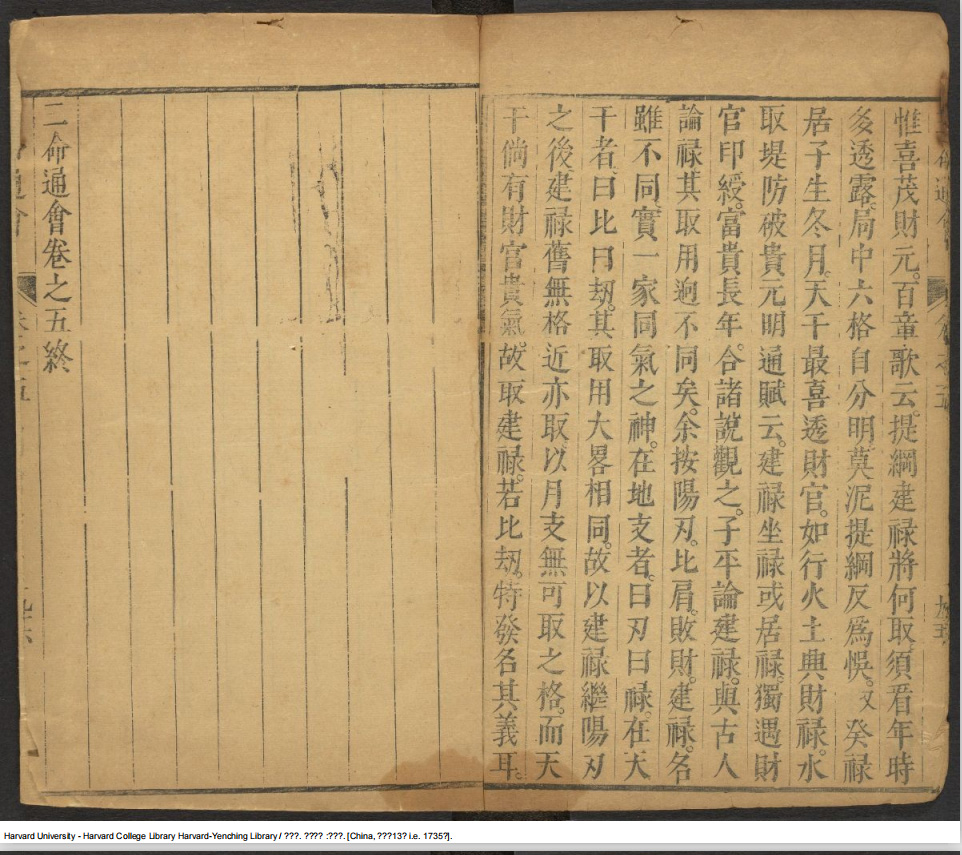 惟喜茂財元。百章歌云。提綱建祿將何取。須看年時
多透露。局中六格自分明。莫泥提綱反爲悞。又癸祿
居子生冬月。天干最喜透財官。如行火土與財祿。水
取堤防破貴元明通賦云。建祿坐祿或居祿。獨遇財
官印綬。富貴長年。合諸說觀之。子平論建祿。與古人
論祿其取用逈不同矣。余按陽刃。比肩。敗財。建祿。名
雖不同。實一家同氣之神。在地支者。曰刃曰祿。在天
干者。曰比曰刼。其取用大畧相同。故以建祿繼陽刃
之後建祿舊無格近亦取。以月支無可取之格。而天
干倘有財官貴氣。故取建祿。若比刼。特發名其義耳。
二命通會卷之五終
Harvard University - Harvard College Library Harvard-Yenching Library / ???. ???? :???. [China, ???13? i.e. 1735?].